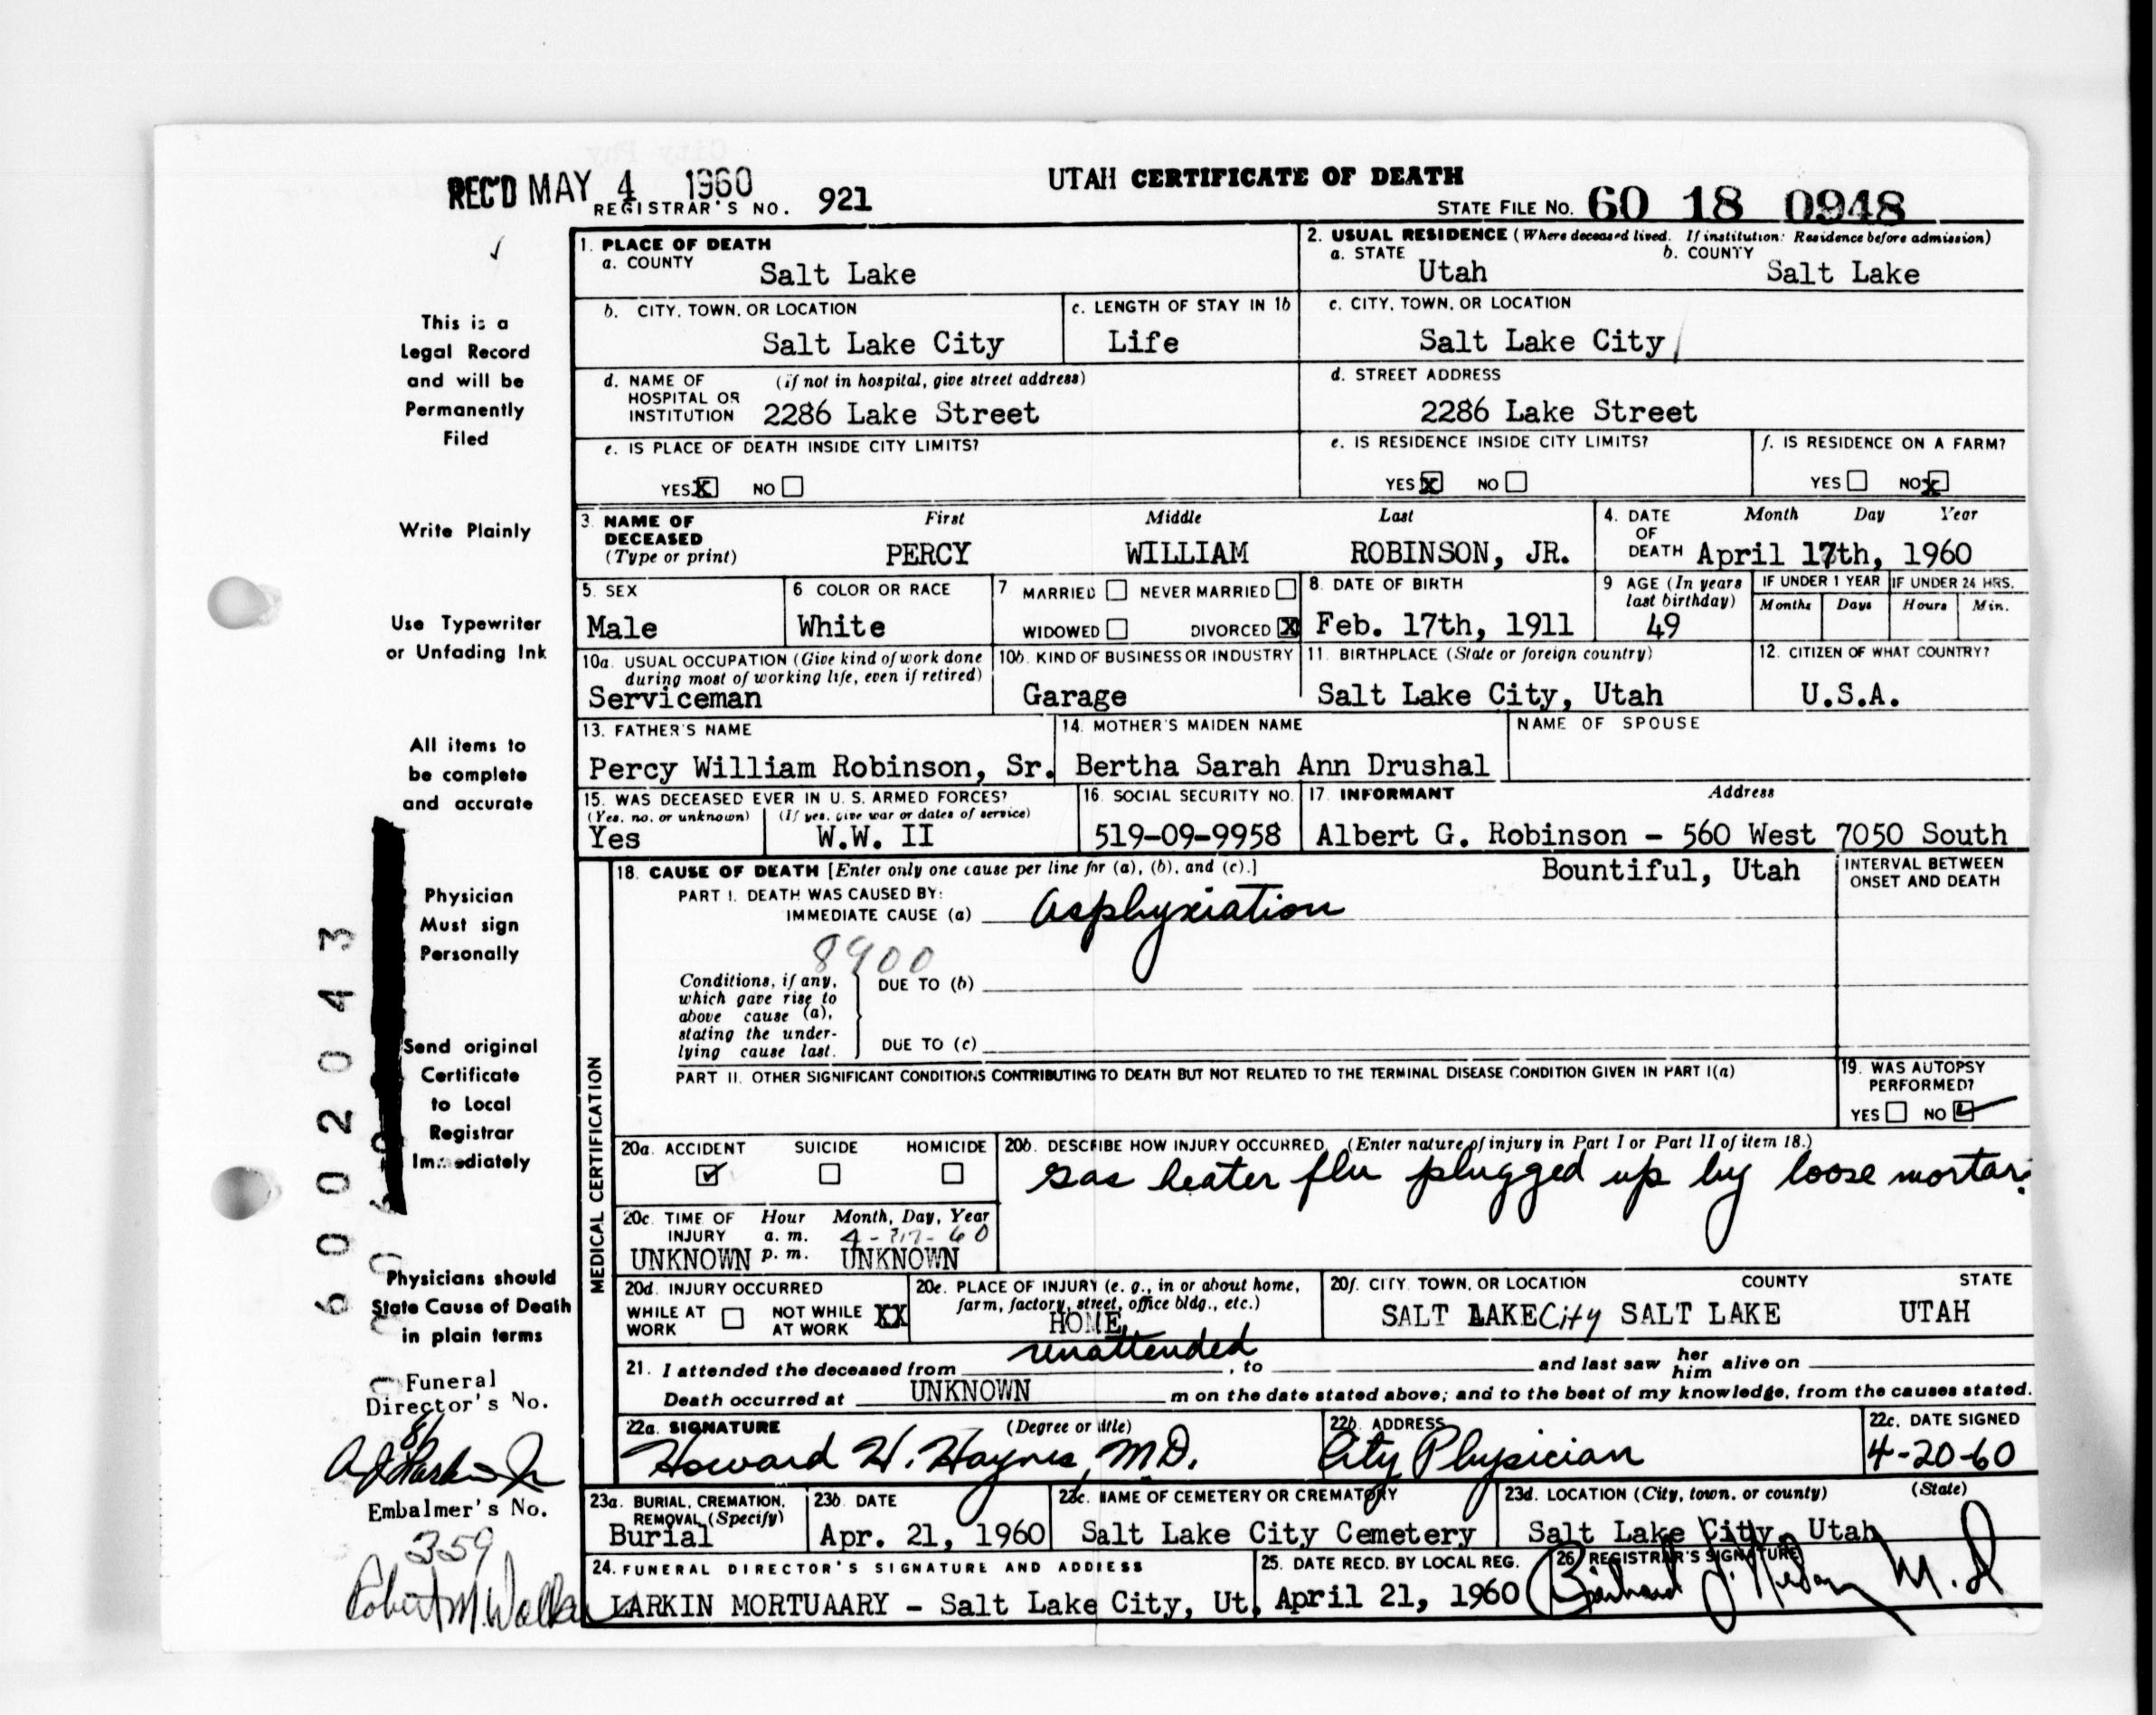 REC'D MAY 4 1960
UTAH CERTIFICATE OF DEATH
REGISTRAR'S NO. 921
STATE FILE NO. 60 18 0948
1. PLACE OF DEATH
a. COUNTY
Salt Lake
2. USUAL RESIDENCE (Where deceased lived. If institution: Residence before admission)
a. STATE
Utah
b. COUNTY
Salt Lake
b. CITY, TOWN, OR LOCATION
Salt Lake City
c. LENGTH OF STAY IN 1b
Life
c. CITY, TOWN, OR LOCATION
Salt Lake City
d. NAME OF HOSPITAL OR INSTITUTION
(if not in hospital, give street address)
2286 Lake Street
d. STREET ADDRESS
2286 Lake Street
e. IS PLACE OF DEATH INSIDE CITY LIMITS?
YES X NO
e. IS RESIDENCE INSIDE CITY LIMITS?
YES X NO
f. IS RESIDENCE ON A FARM?
YES NO X
3. NAME OF DECEASED (Type or print)
First Middle Last
PERCY WILLIAM ROBINSON, JR.
4. DATE OF DEATH
Month Day Year
April 17th, 1960
5. SEX
Male
6 COLOR OR RACE
White
7 MARRIED NEVER MARRIED
WIDOWED DIVORCED X
8. DATE OF BIRTH
Feb. 17th, 1911
9 AGE (In years last birthday)
49
IF UNDER 1 YEAR
Months Days
IF UNDER 24 HRS.
Hours Min.
10a. USUAL OCCUPATION (Give kind of work done during most of working life, even if retired)
Serviceman
10b. KIND OF BUSINESS OR INDUSTRY
Garage
11. BIRTHPLACE (State or foreign country)
Salt Lake City, Utah
12. CITIZEN OF WHAT COUNTRY?
U.S.A.
13. FATHER'S NAME
Percy William Robinson, Sr.
14. MOTHER'S MAIDEN NAME
Bertha Sarah Ann Drushal
NAME OF SPOUSE
15. WAS DECEASED EVER IN U. S. ARMED FORCES?
(Yes, no, or unknown) (If yes, give war or dates of service)
Yes W.W. II
16. SOCIAL SECURITY NO.
519-09-9958
17. INFORMANT Address
Albert G. Robinson - 560 West 7050 South
Bountiful, Utah
MEDICAL CERTIFICATION
18. CAUSE OF DEATH [Enter only one cause per line for (a), (b), and (c).]
INTERVAL BETWEEN ONSET AND DEATH
PART I. DEATH WAS CAUSED BY:
IMMEDIATE CAUSE (a) Asphyxiation
8900
Conditions, if any, which gave rise to above cause (a), stating the underlying cause last.
DUE TO (b)
DUE TO (c)
PART II. OTHER SIGNIFICANT CONDITIONS CONTRIBUTING TO DEATH BUT NOT RELATED TO THE TERMINAL DISEASE CONDITION GIVEN IN PART I(a)
19. WAS AUTOPSY PERFORMED?
YES NO
20a. ACCIDENT SUICIDE HOMICIDE
20b. DESCRIBE HOW INJURY OCCURRED. (Enter nature of injury in Part I or Part II of item 18.)
Gas heater flu plugged up by loose mortar.
20c. TIME OF INJURY
Hour a. m. p. m.
Month, Day, Year
UNKNOWN UNKNOWN
20d. INJURY OCCURRED
WHILE AT WORK NOT WHILE AT WORK XX
20e. PLACE OF INJURY (e. g., in or about home, farm, factory, street, office bldg., etc.)
HOME
20f. CITY, TOWN, OR LOCATION COUNTY STATE
SALT LAKE City SALT LAKE UTAH
21. I attended the deceased from unattended, to and last saw her him alive on
Death occurred at UNKNOWN m on the date stated above; and to the best of my knowledge, from the causes stated.
22a. SIGNATURE (Degree or title)
Howard H. Haynes, M.D.
22b. ADDRESS
City Physician
22c. DATE SIGNED
4-20-60
23a. BURIAL, CREMATION, REMOVAL (Specify)
Burial
23b. DATE
Apr. 21, 1960
23c. NAME OF CEMETERY OR CREMATORY
Salt Lake City Cemetery
23d. LOCATION (City, town, or county) (State)
Salt Lake City, Utah
24. FUNERAL DIRECTOR'S SIGNATURE AND ADDRESS
LARKIN MORTUAARY - Salt Lake City, Ut.
25. DATE RECD. BY LOCAL REG.
April 21, 1960
26 REGISTRAR'S SIGNATURE
M.D
This is a
Legal Record
and will be
Permanently
Filed
Write Plainly
Use Typewriter
or Unfading Ink
All items to
be complete
and accurate
Physician
Must sign
Personally
Send original
Certificate
to Local
Registrar
Immediately
Physicians should
State Cause of Death
in plain terms
Funeral
Director's No.
81
Embalmer's No.
359
6002043